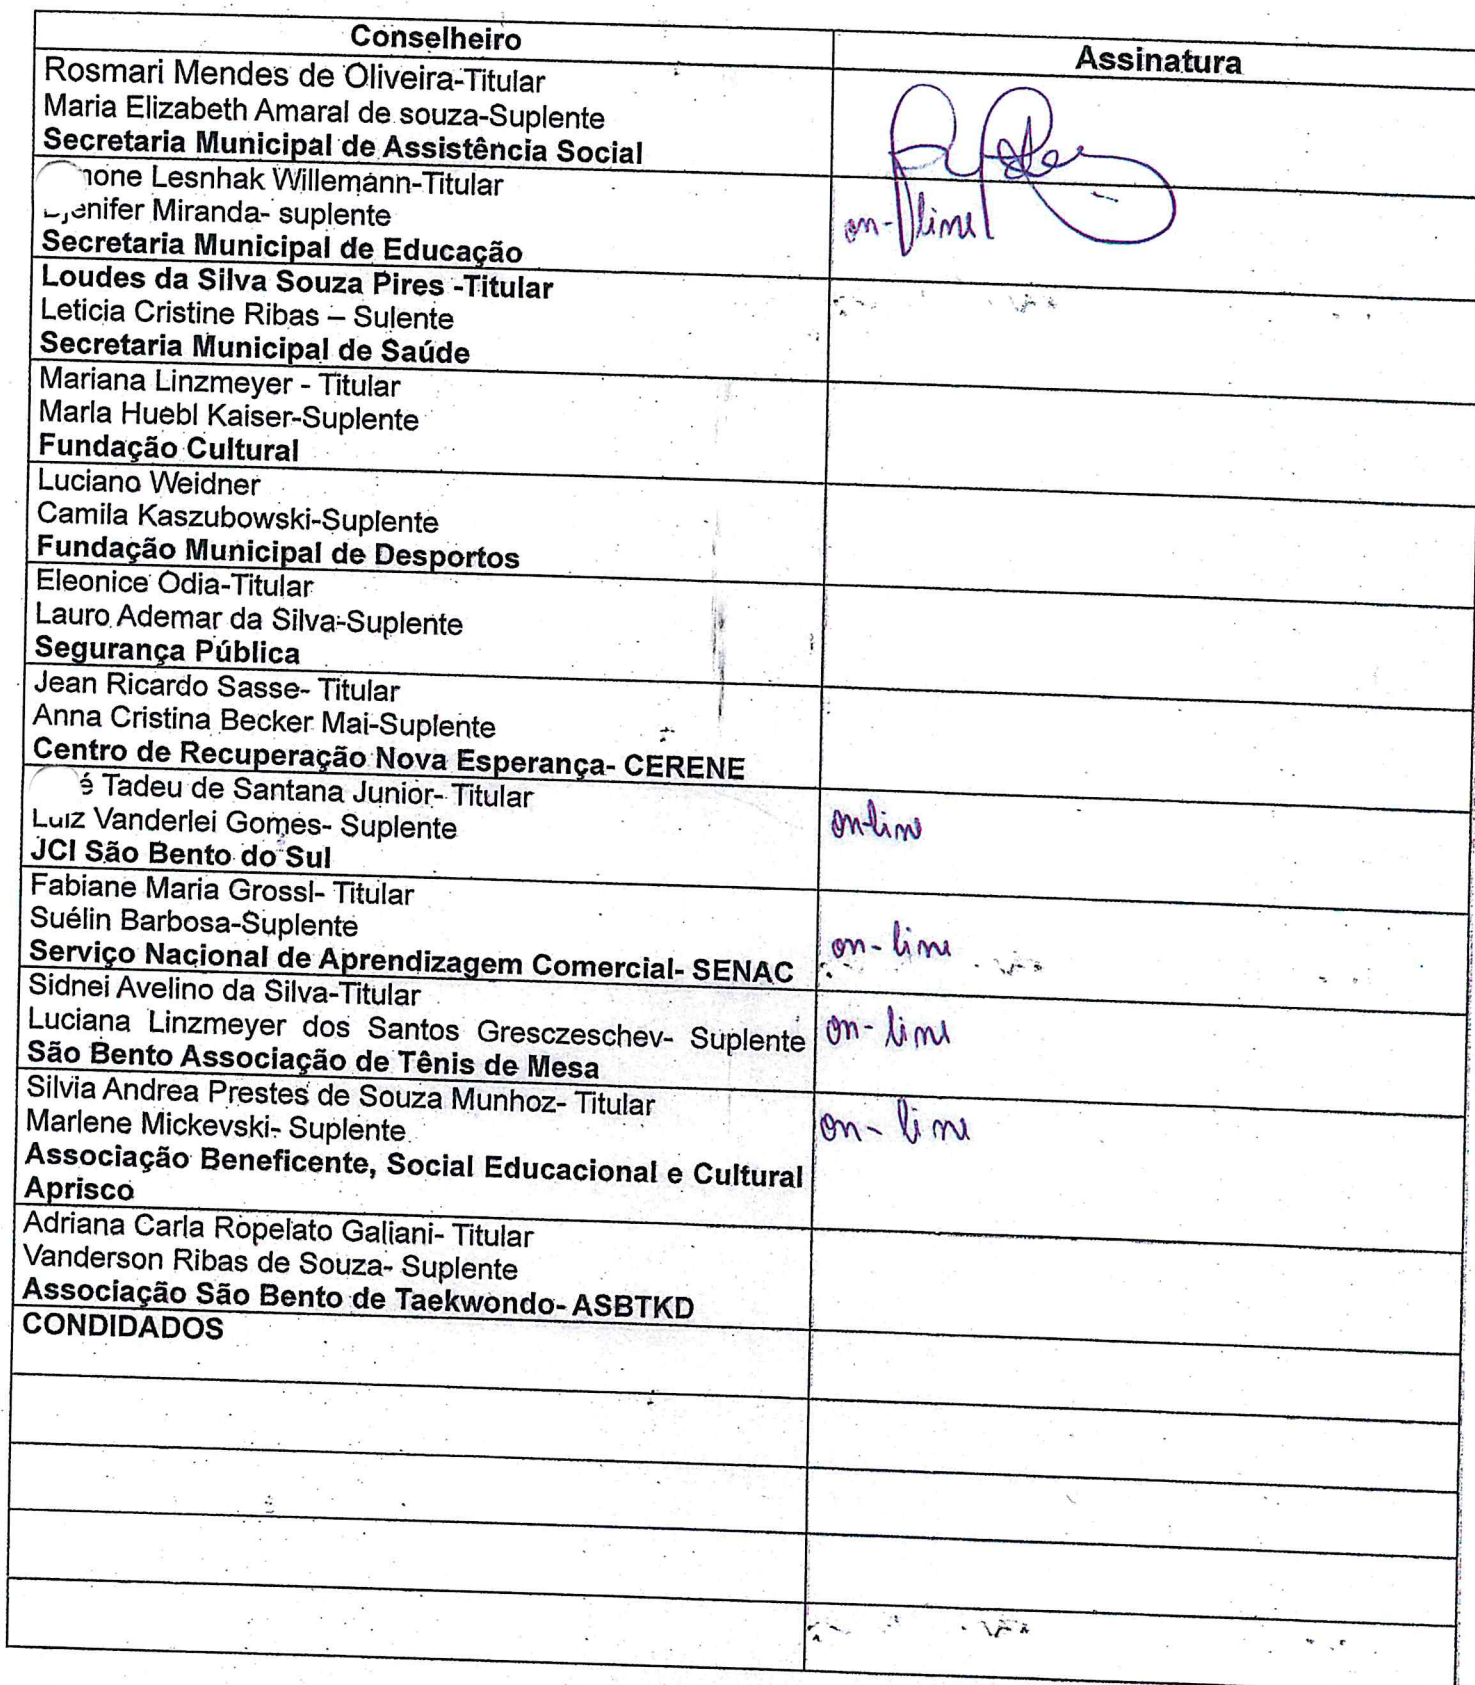 Conselheiro Assinatura
Rosmari Mendes de Oliveira-Titular
Maria Elizabeth Amaral de souza-Suplente
Secretaria Municipal de Assistência Social
Lesnhak Willemann-Titular
Miranda- suplente on-line
Secretaria Municipal de Educação
Loudes da Silva Souza Pires -Titular
Leticia Cristine Ribas – Sulente
Secretaria Municipal de Saúde
Mariana Linzmeyer - Titular
Marla Huebl Kaiser-Suplente
Fundação Cultural
Luciano Weidner
Camila Kaszubowski-Suplente
Fundação Municipal de Desportos
Eleonice Odia-Titular
Lauro Ademar da Silva-Suplente
Segurança Pública
Jean Ricardo Sasse- Titular
Anna Cristina Becker Mai-Suplente
Centro de Recuperação Nova Esperança- CERENE
Tadeu de Santana Junior- Titular
Luiz Vanderlei Gomes- Suplente on-line
JCI São Bento do Sul
Fabiane Maria Grossl- Titular
Suélin Barbosa-Suplente
Serviço Nacional de Aprendizagem Comercial- SENAC on-line
Sidnei Avelino da Silva-Titular
Luciana Linzmeyer dos Santos Gresczeschev- Suplente on-line
São Bento Associação de Tênis de Mesa
Silvia Andrea Prestes de Souza Munhoz- Titular
Marlene Mickevski- Suplente on-line
Associação Beneficente, Social Educacional e Cultural
Aprisco
Adriana Carla Ropelato Galiani- Titular
Vanderson Ribas de Souza- Suplente
Associação São Bento de Taekwondo- ASBTKD
CONDIDADOS